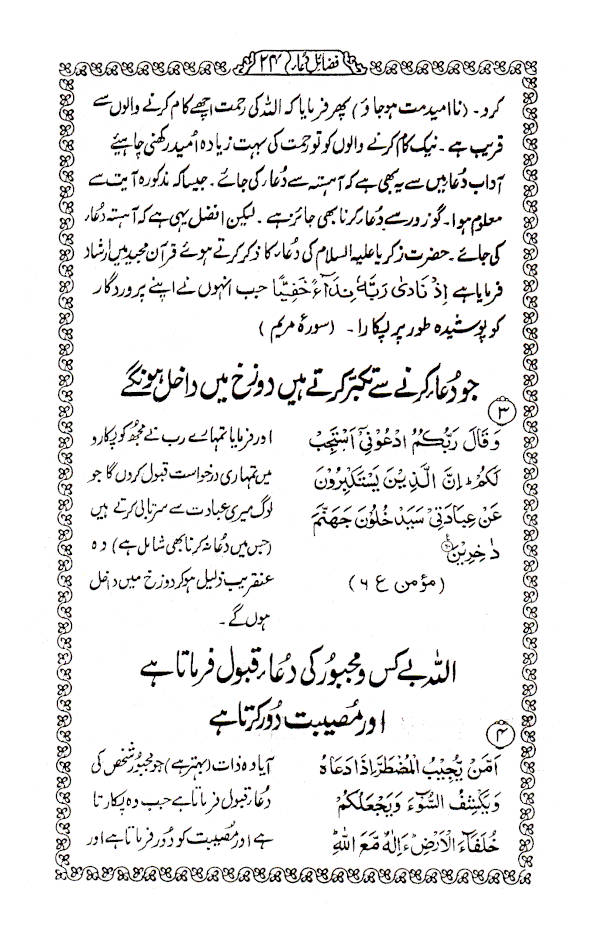 فضائل دعاء ۲۴
کرد۔ (ناامید مت ہوجاؤ) پھر فرمایا کہ اللہ کی رحمت اچھے کام کرنے والوں سے
قریب ہے۔ نیک کام کرنے والوں کو تو رحمت کی بہت زیادہ اُمید رکھنی چاہیئے
آداب دُعا میں سے یہ بھی ہے کہ آہستہ سے دُعاء کی جائے۔ جیسا کہ مذکورہ آیت سے
معلوم ہوا۔ گو زور سے دُعاء کرنا بھی جائز ہے۔ لیکن افضل یہی ہے کہ آہستہ دُعاء
کی جائے۔ حضرت زکریا علیہ السلام کی دُعاء کا ذکر کرتے ہوئے قرآن مجید میں ارشاد
فرمایا ہے اِذْ نَادٰی رَبَّهٗ نِدَآءً خَفِیًّا جب انہوں نے اپنے پروردگار
کو پوشیدہ طور پر پکارا۔ (سورۂ مریم)
جو دُعاء کرنے سے تکبّر کرتے ہیں دوزخ میں داخل ہونگے
۳
وَقَالَ رَبُّكُمُ ادْعُوْنِیْٓ اَسْتَجِبْ
لَكُمْ ؕ اِنَّ الَّذِیْنَ یَسْتَكْبِرُوْنَ
عَنْ عِبَادَتِیْ سَیَدْخُلُوْنَ جَهَنَّمَ
دٰخِرِیْنَ
(مؤمن ع ۶)
اور فرمایا تمہارے رب نے مجھ کو پکارو
میں تمہاری درخواست قبول کروں گا جو
لوگ میری عبادت سے سرتابی کرتے ہیں
(جس میں دُعا نہ کرنا بھی شامل ہے) وہ
عنقریب ذلیل ہوکر دوزخ میں داخل
ہوں گے۔
اللہ بے کس و مجبور کی دُعاء قبول فرماتا ہے
اور مُصیبت دُور کرتا ہے
۴
اَمَّنْ یُّجِیْبُ الْمُضْطَرَّ اِذَا دَعَاهُ
وَیَكْشِفُ السُّوْٓءَ وَیَجْعَلُكُمْ
خُلَفَآءَ الْاَرْضِ ؕ ءَاِلٰهٌ مَّعَ اللّٰهِ ؕ
آیا وہ ذات (بہتر ہے) جو مجبور شخص کی
دُعاء قبول فرماتا ہے جب وہ پکارتا
ہے اور مُصیبت کو دُور فرماتا ہے اور